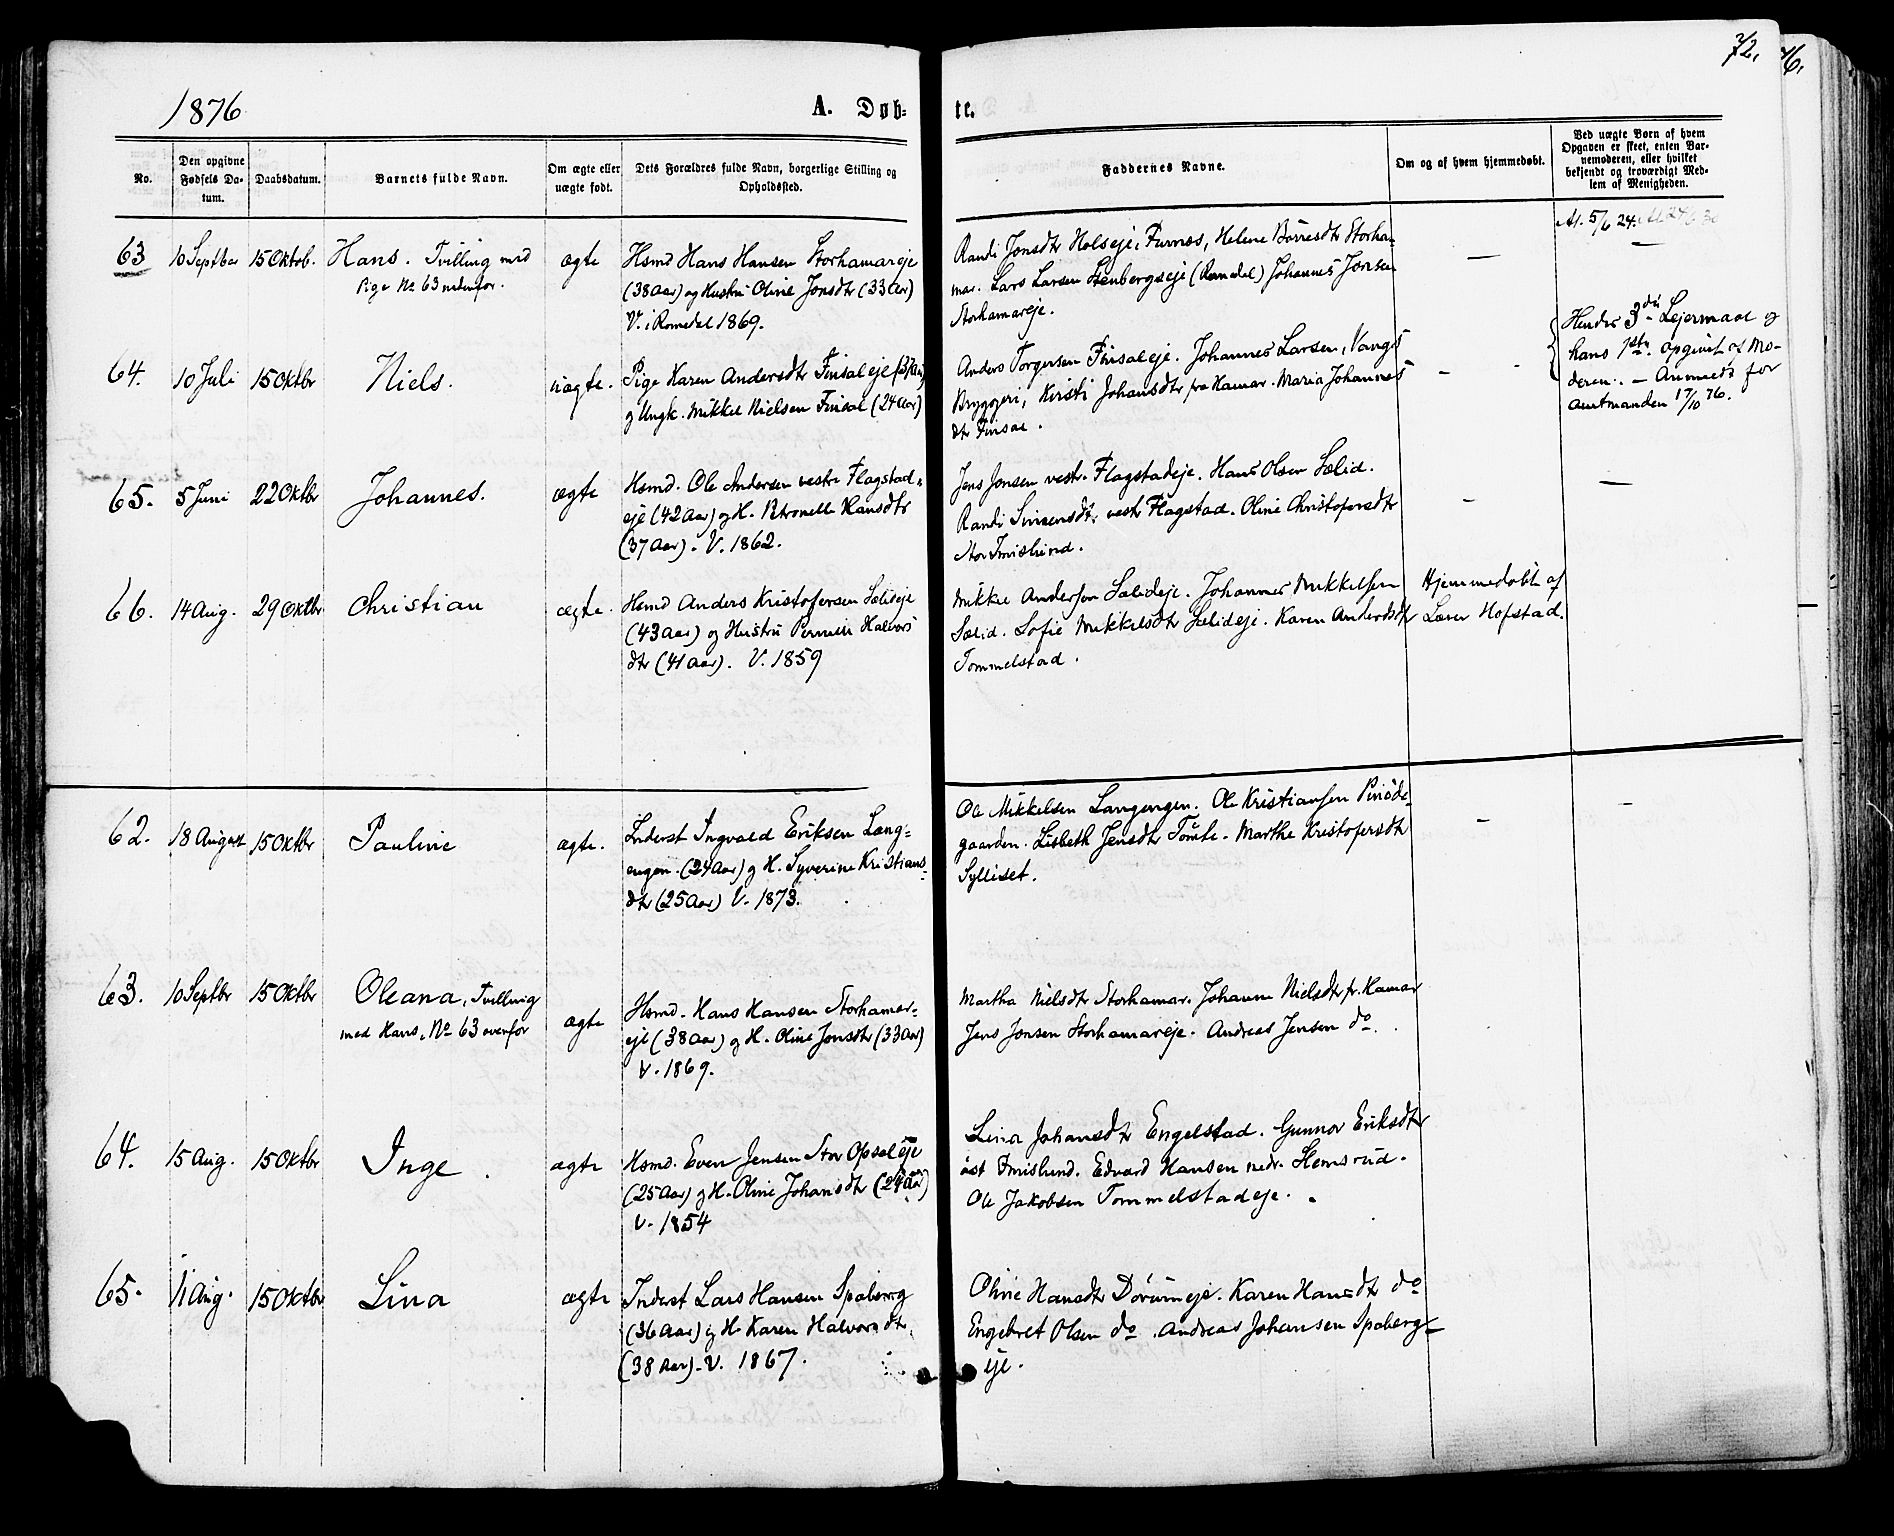 72.
76.
1876
A. Døb=
te.
No.
Den opgivne
Fødsels Da-
tum.
Daabsdatum.
Barnets fulde Navn.
Om ægte eller
uægte født.
Dets Forældres fulde Navn, borgerlige Stilling og
Opholdsted.
Faddernes Navne.
Om og af hvem hjemmedøbt.
Ved uægte Børn af hvem
Opgaven er skeet, enten Bar-
nemoderen, eller hvilket
bekjendt og troværdigt Med-
lem af Menigheden.
63
10 Septber
15 Oktob.
Hans. Tvilling med
Pige No 63 nedenfor.
ægte
Hsmd Hans Hansen Storhamareje
(38 Aar) og Hustru Oline Jonsdtr (33 Aar)
V. i Romedal 1869.
Randi Jonsdtr Holseje, Furnæs, Helene Børresdtr Storha-
mar. Lars Larsen Stenbergseje (Romedal) Johannes Jonsen
Storhamareje.
—
At. 5/6 24.
—
64.
10 Juli
15 Oktbr
Niels.
uægte.
Pige Karen Andersdtr Finsaleje (37 Aar)
og Ungk. Mikkel Nielsen Finsal (24 Aar)
Anders Torgersen Finsaleje. Johannes Larsen, Vangs
Bryggeri, Kirsti Johansdtr fra Hamar. Maria Johannes
dtr Finsal.
—
Hendes 3die Lejermaal og
hans 1ste. opgivet af Mo-
deren. — Anmeldt for
Amtmanden 17/10 76.
65.
5 Juni
22 Oktbr
Johannes.
ægte
Hsmd. Ole Andersen vestre Flagstad-
eje (42 Aar) og H. Petronelle Hansdtr
(37 Aar). V. 1862.
Jens Jonsen vestr. Flagstadeje. Hans Olsen Sælid.
Randi Simensdtr vestr Flagstad. Oline Christofersdtr
Stor Imislund.
—
—
66.
14 Aug.
29 Oktbr
Christian
ægte.
Hsmd Anders Kristofersen Sælideje
(43 Aar) og Hustru Pernille Halvors
dtr (41 Aar). V. 1859
Mikkel Andersen Sælideje. Johannes Mikkelsen
Sælid. Sofie Mikkelsdtr Sælideje. Karen Andersdtr
Tommelstad.
Hjemmedøbt af
Lærer Hofstad.
62.
18 August
15 Oktbr
Pauline
ægte.
Inderst Ingvald Eriksen Lang-
engen. (24 Aar) og H. Syverine Kristians-
dtr (25 Aar) V. 1873.
Ole Mikkelsen Langengen. Ole Kristiansen Prøsde-
gaarden. Lisbeth Jensdtr Tomte. Marthe Kristofersdtr
Sylliset.
—
—
63.
10 Septbr
15 Oktbr
Oleana, Tvilling
med Hans, No 63 ovenfor
ægte
Hsmd. Hans Hansen Storhamar-
eje (38 Aar) og H. Oline Jonsdtr (33 Aar)
V. 1869.
Martha Nielsdtr Storhamar. Johanne Nielsdtr fr. Hamar
Jens Jonsen Storhamareje. Andreas Jensen do.
64.
15 Aug.
15 Oktbr
Inge
ægte
Hsmd. Even Jensen Stor Opsaleje
(25 Aar) og H. Oline Johansdtr (24 Aar)
V. 1854
Lina Johansdtr Engelstad. Gunnor Eriksdtr
øst Imislund. Edvard Hansen nedr. Hemsrud.
Ole Jakobsen Tommelstadeje.
65.
11 Aug.
15 Oktbr
Lina
ægte
Inderst Lars Hansen Spaberg
(36 Aar) og H. Karen Halvorsdtr.
(38 Aar). V. 1867.
Oline Hansdtr Dørumeje. Karen Hansdtr do
Engebret Olsen do. Andreas Johansen Spaberg-
eje.